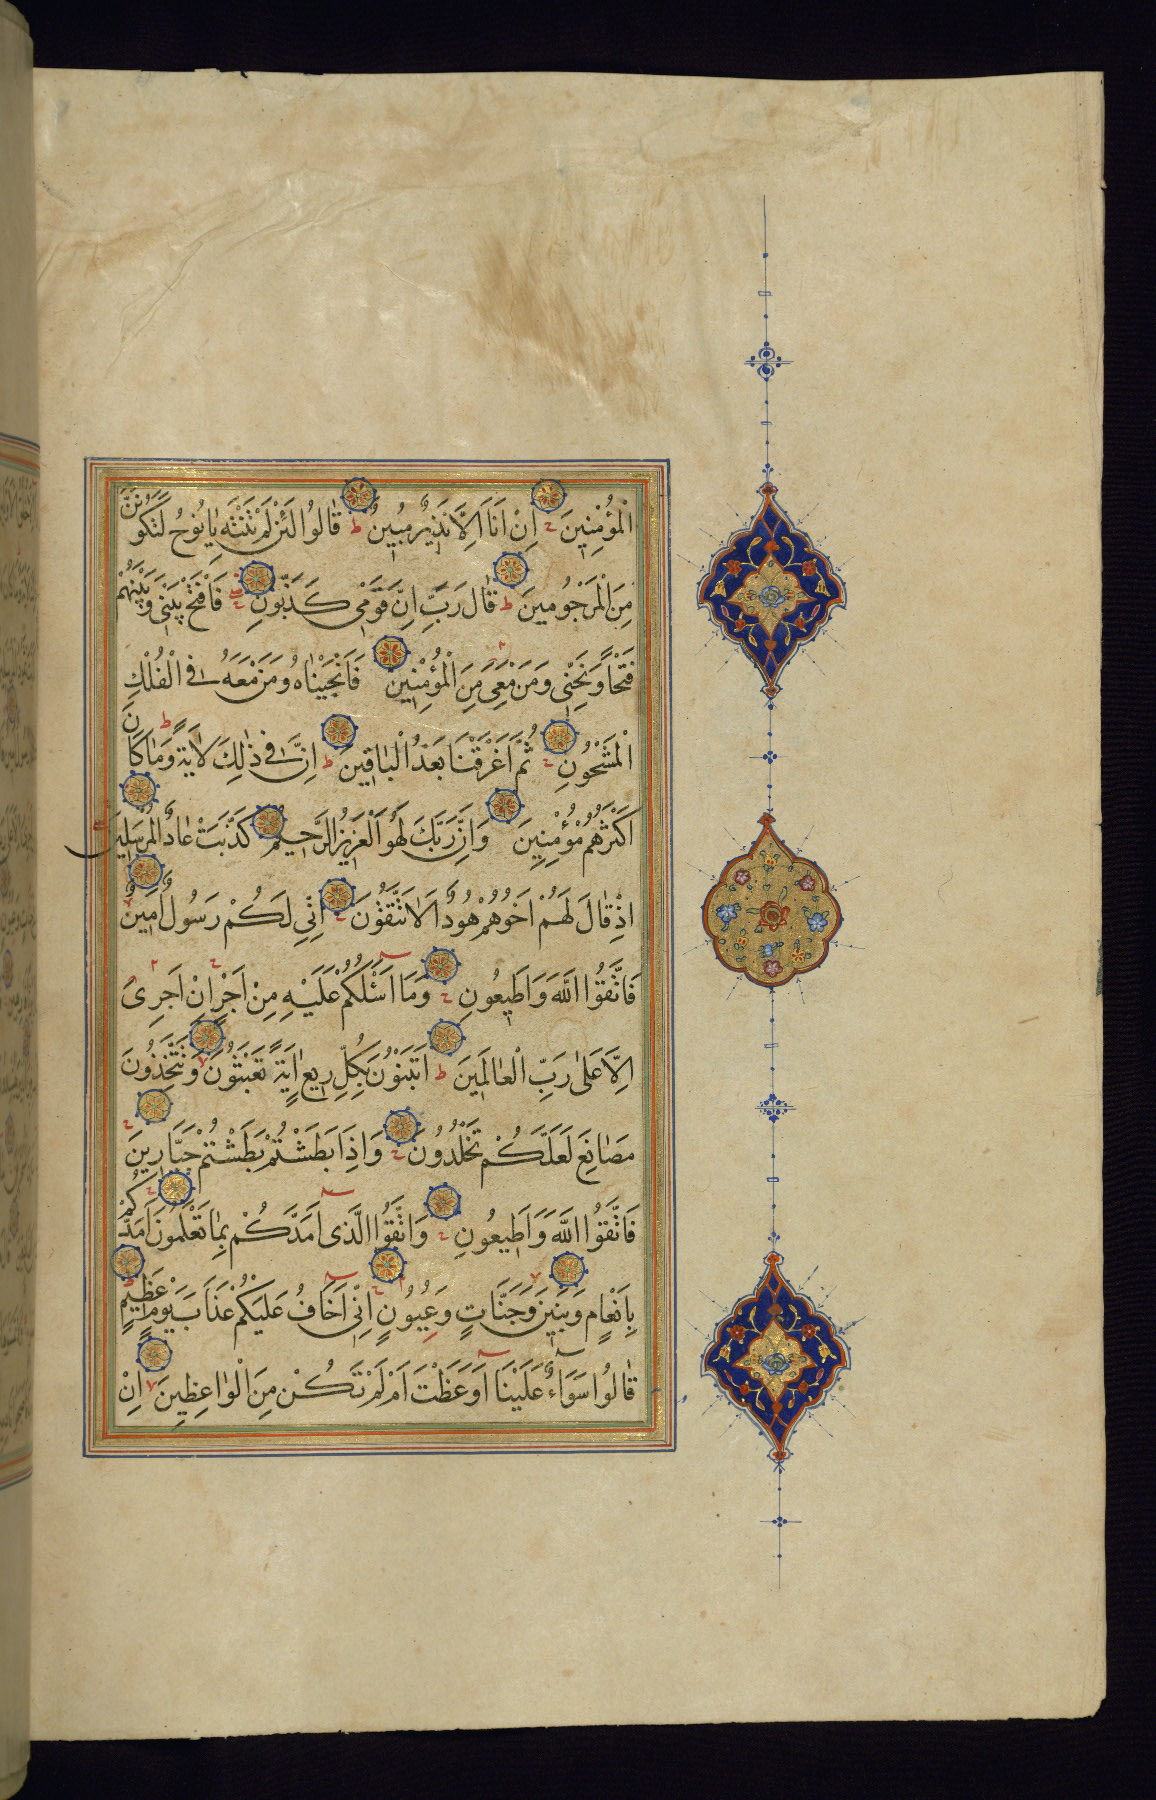 الْمُؤْمِنِينَ اِنْ اَنَا اِلَّا نَذِيرٌ مُبِينٌ قَالُوا لَئِنْ لَمْ تَنْتَهِ يَانُوحُ لَتَكُونَنَّ
مِنَ الْمَرْجُومِينَ قَالَ رَبِّ اِنَّ قَوْمِى كَذَّبُونِ فَافْتَحْ بَيْنِى وَبَيْنَهُمْ
فَتْحًا وَنَجِّنِى وَمَنْ مَعِىَ مِنَ الْمُؤْمِنِينَ فَاَنْجَيْنَاهُ وَمَنْ مَعَهُ فِى الْفُلْكِ
الْمَشْحُونِ ثُمَّ اَغْرَقْنَا بَعْدُ الْبَاقِينَ اِنَّ فِى ذٰلِكَ لَاٰيَةً وَمَا كَانَ
اَكْثَرُهُمْ مُؤْمِنِينَ وَاِنَّ رَبَّكَ لَهُوَ الْعَزِيزُ الرَّحِيمُ كَذَّبَتْ عَادٌ الْمُرْسَلِينَ
اِذْ قَالَ لَهُمْ اَخُوهُمْ هُودٌ اَلَا تَتَّقُونَ اِنِّى لَكُمْ رَسُولٌ اَمِينٌ
فَاتَّقُوا اللّٰهَ وَاَطِيعُونِ وَمَا اَسْئَلُكُمْ عَلَيْهِ مِنْ اَجْرٍ اِنْ اَجْرِىَ
اِلَّا عَلٰى رَبِّ الْعَالَمِينَ اَتَبْنُونَ بِكُلِّ رِيعٍ اٰيَةً تَعْبَثُونَ وَتَتَّخِذُونَ
مَصَانِعَ لَعَلَّكُمْ تَخْلُدُونَ وَاِذَا بَطَشْتُمْ بَطَشْتُمْ جَبَّارِينَ
فَاتَّقُوا اللّٰهَ وَاَطِيعُونِ وَاتَّقُوا الَّذِى اَمَدَّكُمْ بِمَا تَعْلَمُونَ اَمَدَّكُمْ
بِاَنْعَامٍ وَبَنِينَ وَجَنَّاتٍ وَعُيُونٍ اِنِّى اَخَافُ عَلَيْكُمْ عَذَابَ يَوْمٍ عَظِيمٍ
قَالُوا سَوَاءٌ عَلَيْنَا اَوَعَظْتَ اَمْ لَمْ تَكُنْ مِنَ الْوَاعِظِينَ اِنْ